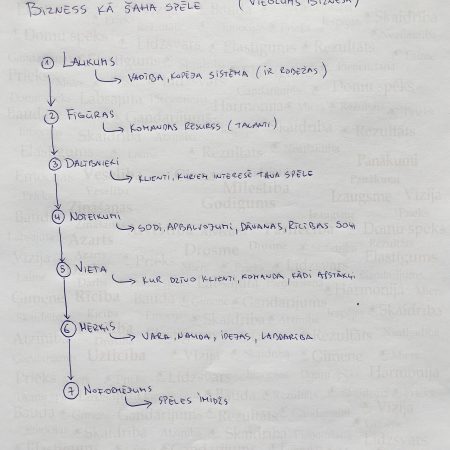 BIZNESS KĀ ŠAHA SPĒLE (VIEGLUMS BIZNESĀ)
1 LAUKUMS
VADĪBA, KOPĒJA SISTĒMA (IR ROBEŽAS)
2 FIGŪRAS
KOMANDAS RESURSS (TALANTI)
3 DALĪBNIEKI
KLIENTI, KURIEM INTERESĒ TAVA SPĒLE
4 NOTEIKUMI
SODI, APBALVOJUMI, DĀVANAS, RĪCĪBAS SOĻI
5 VIETA
KUR DZĪVO KLIENTI, KOMANDA, KĀDI APSTĀKĻI
6 MĒRĶIS
VARA, NAUDA, IDEJAS, LABDARĪBA
7 NOFORMĒJUMS
SPĒLES IMIDŽS